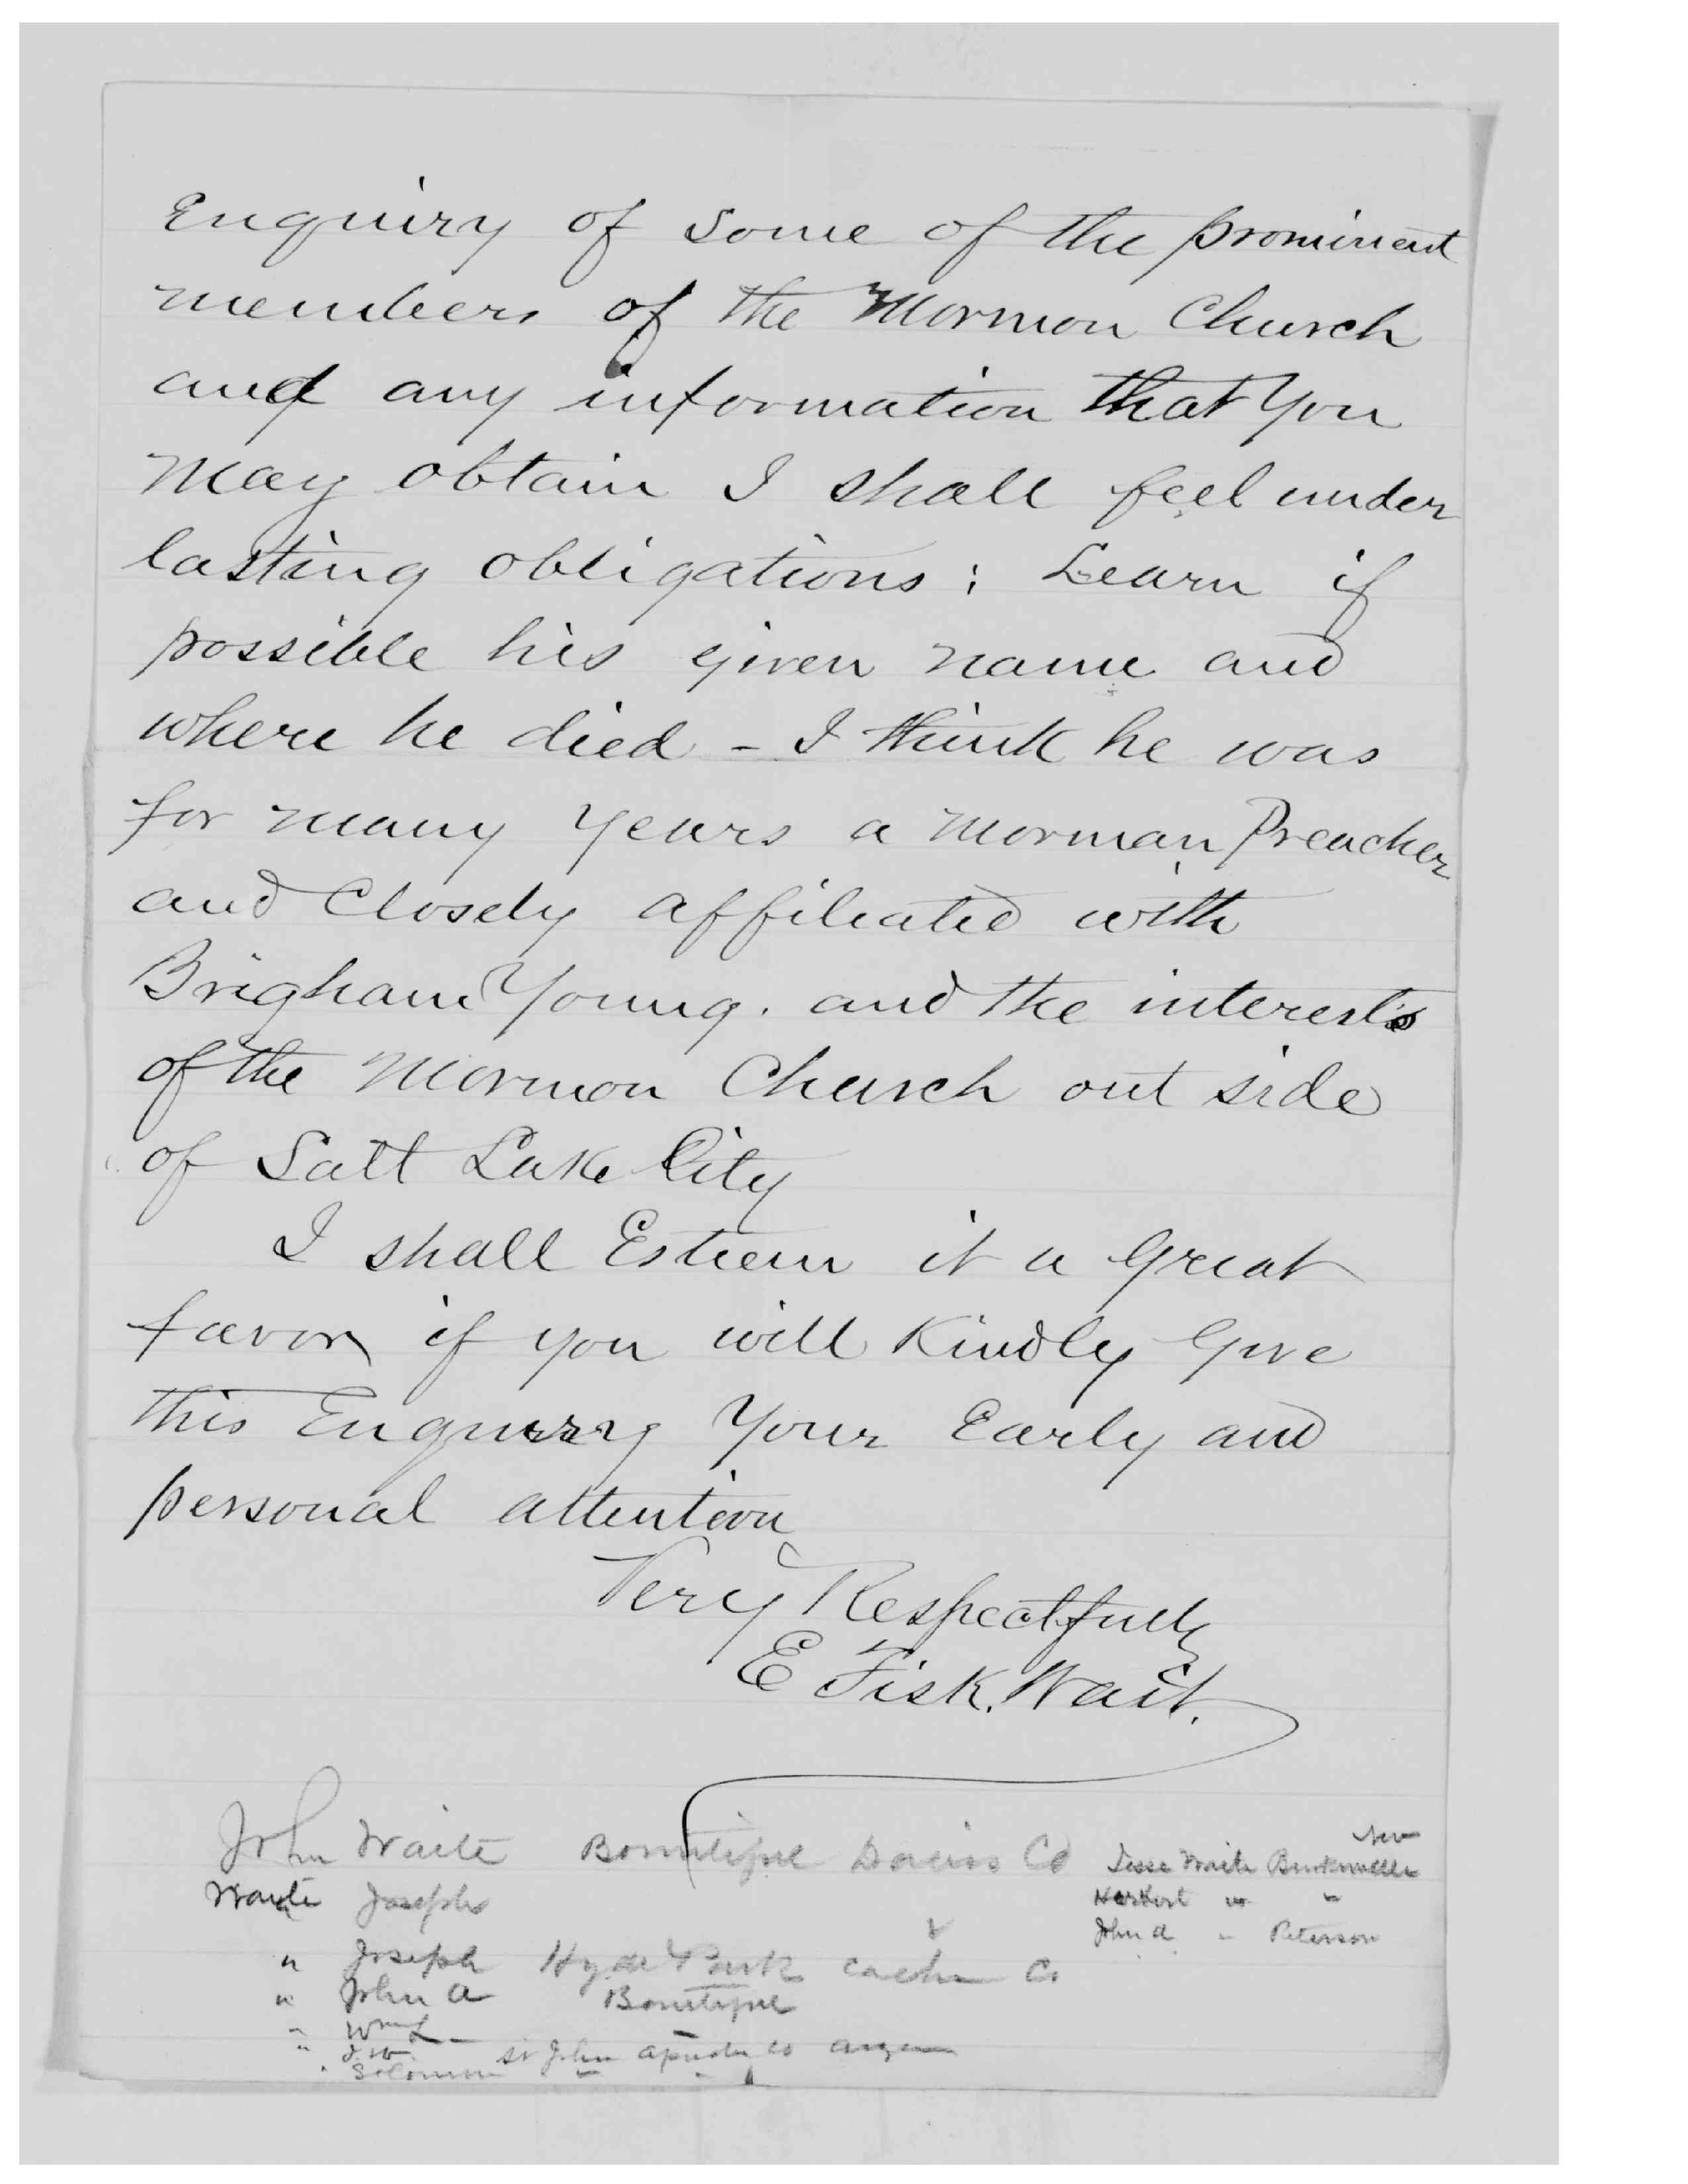 Enquiry of some of the prominent
members of the Mormon Church
and any information that you
may obtain I shall feel under
lasting obligations; Learn if
possible his given name and
where he died - I think he was
for many years a Morman Preacher
and Closely affiliated with
Brigham Young. and the interests
of the Mormon Church out side
of Salt Lake City
I shall Esteem it a Great
favor if you will Kindly Give
this Enquiry Your Early and
personal attention
Very Respectfully
E Fisk. Wait.
John Waite Bountiful Davis Co
Jesse Waite
Waite Joseph
Herbert " "
John A " Peterson
" Joseph Hyde Park Cache Co
" John A Bountiful
" Wm L
" St John Apache Co
" Solomon